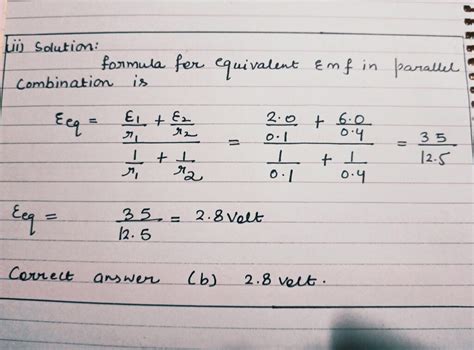 (ii) Solution:
formula for equivalent Emf in parallel
Combination is
Eeq = (E1/r1 + E2/r2) / (1/r1 + 1/r2) = (2.0/0.1 + 6.0/0.4) / (1/0.1 + 1/0.4) = 35/12.5
Eeq = 35/12.5 = 2.8 Volt
Correct answer (b) 2.8 Volt.